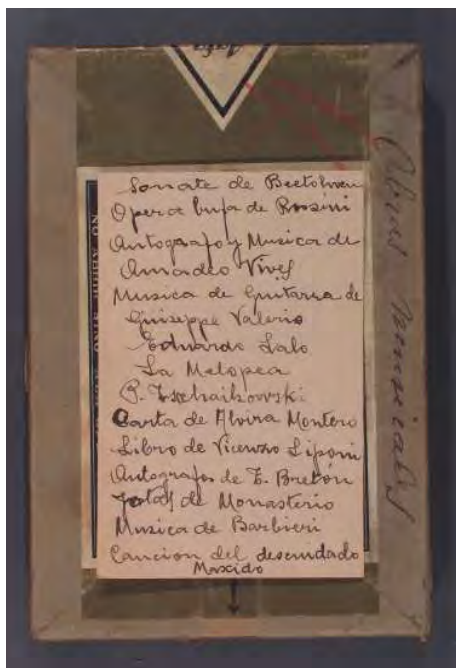 Sonate de Beetohven
Opera bufa de Rossini
Autografo y Musica de
Amadeo Vives
Musica de Guitarra de
Guiseppe Valerio
Eduardo Lalo
La Melopea
P. Tschaikowski
Carta de Alvira Montero
Libro de Vicenzo Liponi
Autografos de T. Bretón
Jotas de Monasterio
Musica de Barbieri
Cancion del descuidado
Maxido
musicales